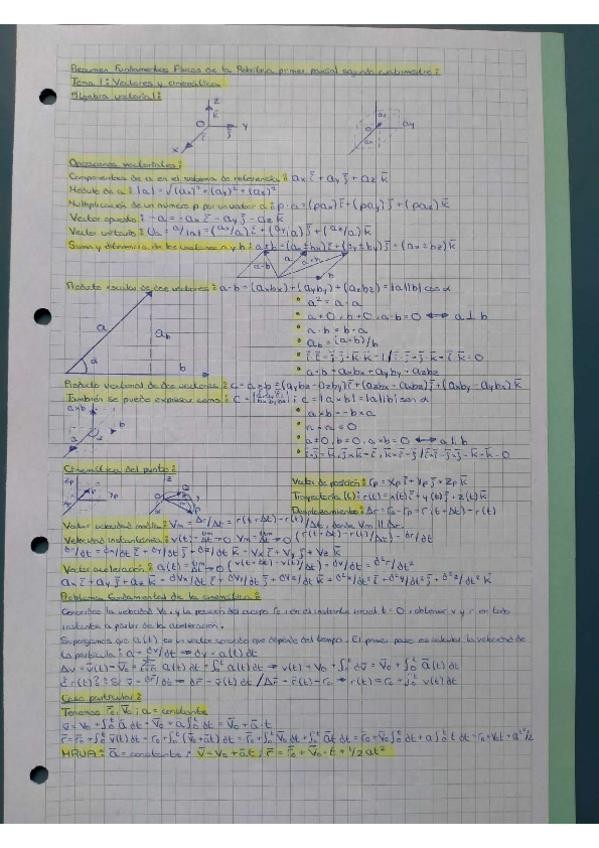 Resumen Fundamentos Físicos de la primer parcial segundo cuatrimestre:
Tema 1: Vectores y cinemática
Álgebra vectorial:
Z
k
O
Y
X
Operaciones vectoriales:
Componentes de a en el sistema de referencia: ax i + ay j + az k
Módulo de a: |a| = √(ax)² + (ay)² + (az)²
Multiplicación de un número p por un vector a: p·a = (pax)i + (pay)j + (paz)k
Vector opuesto: -a = -ax i - ay j - az k
Vector unitario: Ua = a/|a| = (ax/a)i + (ay/a)j + (az/a)k
Suma y diferencia de los vectores a y b: a±b = (ax±bx)i + (ay±by)j + (az±bz)k
a-b
a
a+b
b
Producto escalar de dos vectores: a·b = (axbx) + (ayby) + (azbz) = |a||b|cos α
a² = a·a
a≠0, b≠0, a·b=0 ⟷ a⊥b
a·b = b·a
ab = (a·b)/b
a·b = axbx + ayby + azbz
a
ab
α
b
Producto vectorial de dos vectores: c = a×b = (aybz - azby)i + (azbx - axbz)j + (axby - aybx)k
También se puede expresar como: c = |a×b| = |a||b| sen α
a×b = -b×a
a×a = 0
a×b
b
a
Cinemática del punto:
Vector de posición: rp = xp i + yp j + zp k
Trayectoria (C): r(t) = x(t)i + y(t)j + z(t)k
Desplazamiento: Δr = r(t+Δt) - r(t)
Vector velocidad media: Vm = Δr/Δt = r(t+Δt) - r(t)/Δt, donde Vm || Δr.
Velocidad instantánea: v(t) = lim Δt→0 Vm = lim Δt→0 (r(t+Δt) - r(t))/Δt = dr/dt
dr/dt = dx/dt i + dy/dt j + dz/dt k = Vx i + Vy j + Vz k
Vector aceleración: a(t) = lim Δt→0 (v(t+Δt) - v(t))/Δt = dv/dt = d²r/dt²
ax i + ay j + az k = dVx/dt i + dVy/dt j + dVz/dt k = d²x/dt² i + d²y/dt² j + d²z/dt² k
Problema fundamental de la cinemática:
Conocidas la velocidad V0, y la posición del cuerpo r0, en el instante inicial t = 0, obtener v y r en todo
instante a partir de la aceleración.
Supongamos que a(t) es un vector conocido que depende del tiempo. El primer paso es calcular la velocidad de
la partícula: a = dv/dt ⇒ dv = a(t)dt
¿r(t)? Si v = dr/dt ⇒ dr = v(t)dt / Δr = r(t) - r0 ⇒ r(t) = r0 + ∫ v(t)dt
Caso particular:
Tenemos r0, V0; a = constante
v = V0 + ∫ a dt = V0 + a∫dt = V0 + a·t
MRUA: a = constante; v = V0 + a t; r = r0 + V0·t + 1/2 at²